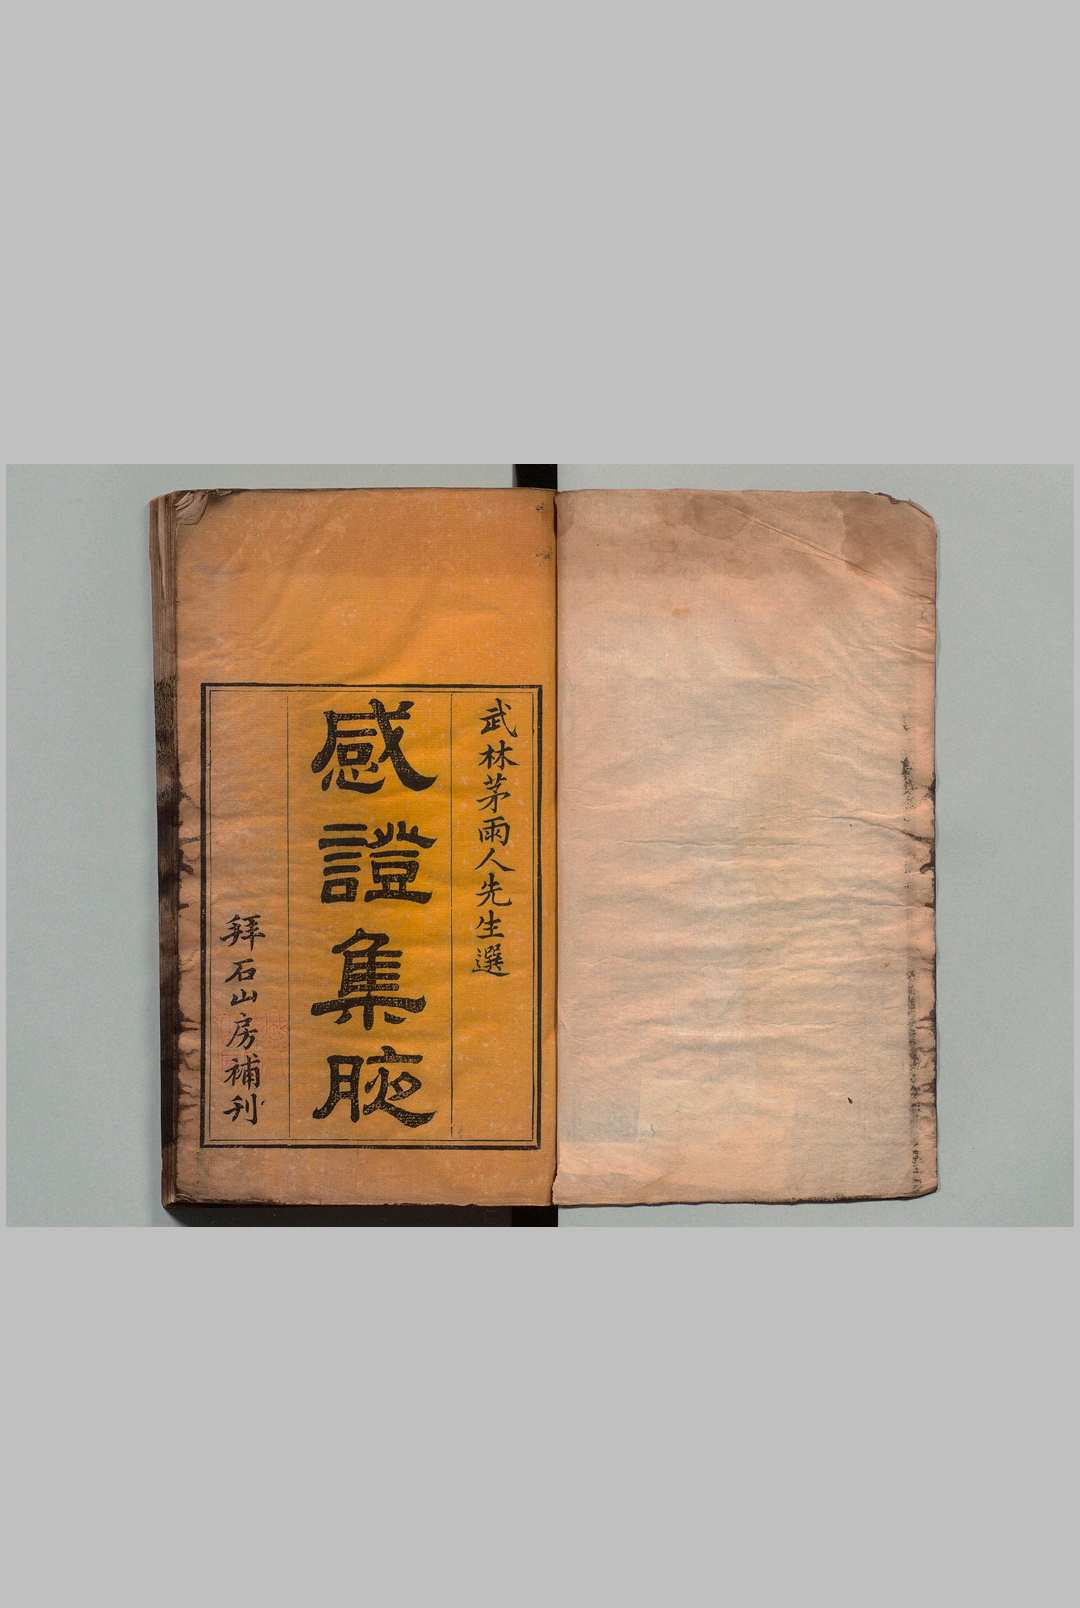 武林茅雨人先生選
感證集腋
拜石山房補刋